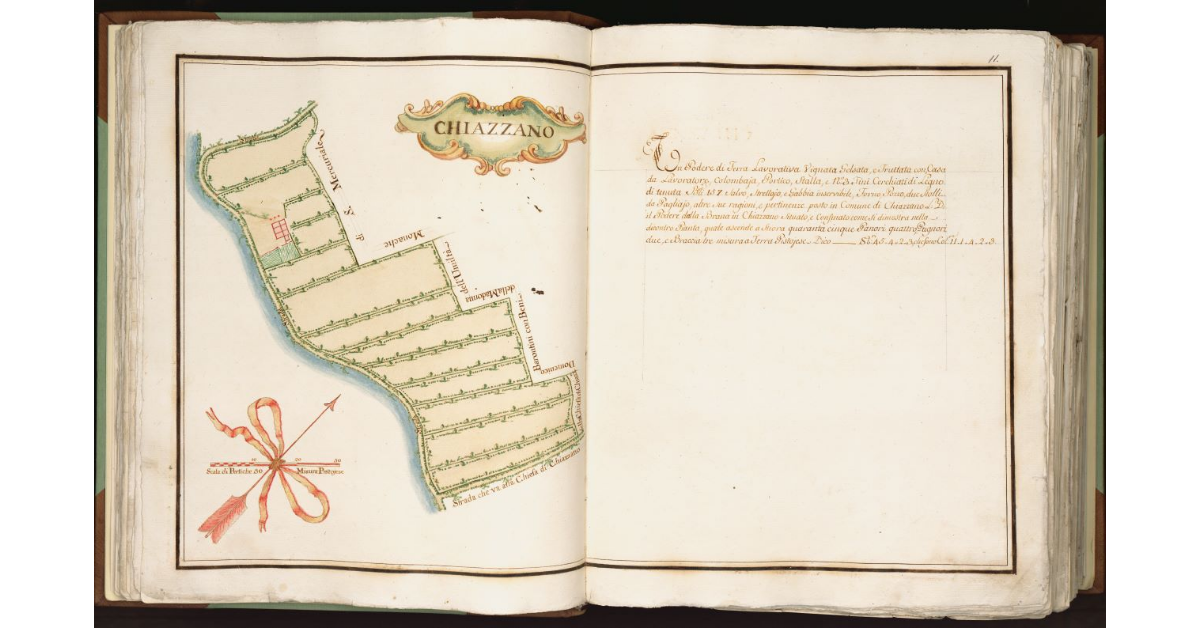 CHIAZZANO
Mercuriale
di S.
Monache
dell'Umiltà
della Madonna
Beni
con
Domenico
Strada che va alla Chiesa di Chiazzano
Scala di Pertiche 50
Misura Pistojese
11.
Un Podere di Terra Lavorativa Vignata Gelsata, e Fruttata con Casa
da Lavoratore, Colombaja, Portico, Stalla, e Nº 3 Tini Cerchiati di Legno
di tenuta Some 137 Salvo, Strettojo, e Gabbia inservibile, Forno Pozzo, due Stalle
da Pagliajo, altre sue ragioni, e pertinenze posto in Comune di Chiazzano L. D.
il Podere della in Chiazzano Situato, e Confinato come si dimostra nella
dicontro Pianta, quale ascende a Stiora quaranta cinque Panori quattro Pugnori
due, e Braccia tre misura a Terra Pistojese Dico 45. 4. 2. 3. 11. 1. 4. 2. 3.